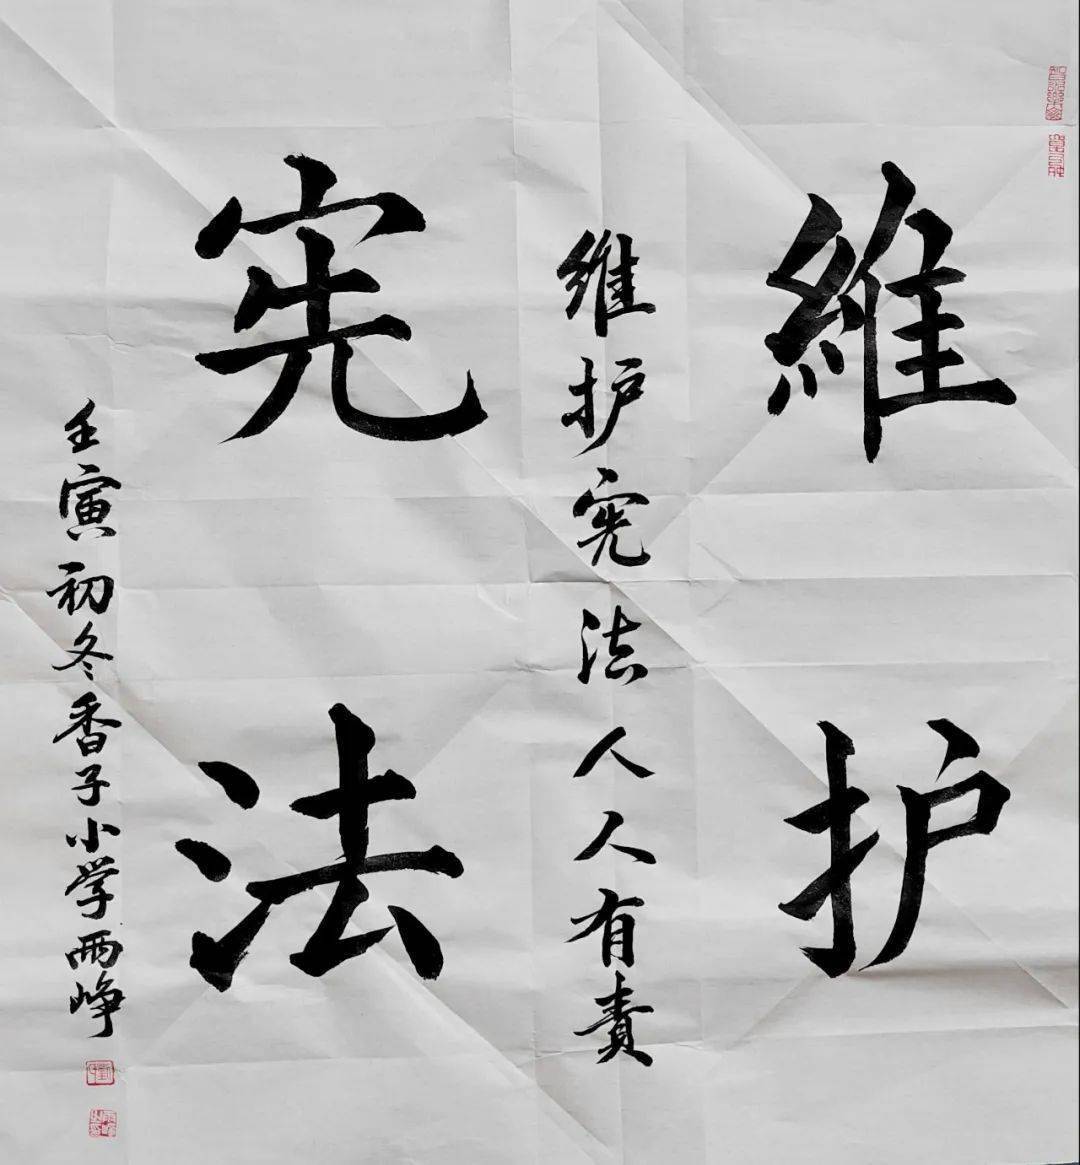 維护
维护宪法人人有責
宪法
壬寅初冬香子小学雨峥